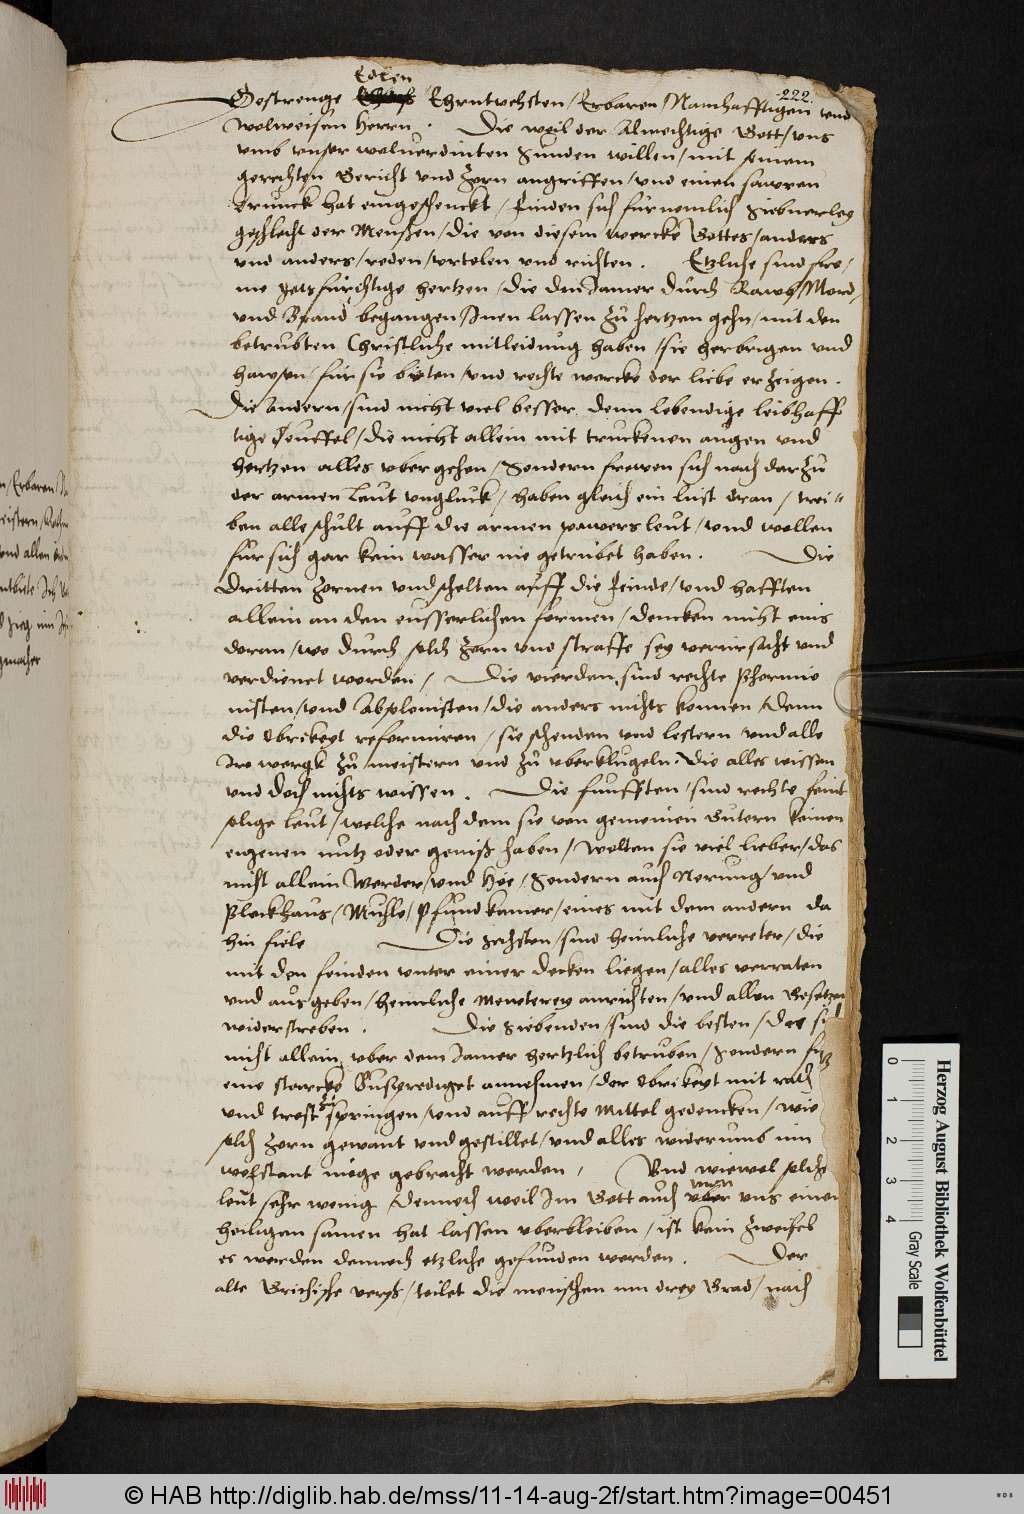 Edlen
222.
Gestrenge Ehrntvehsten / Erbaren / Namhafftigen vnd
Wolweisen Herrn. Die weil der Almechtige Gott / vns
vmb vnser wolverdinten Sunden willen / mit seinem
gerechten Gericht vnd Zorn angriffen / vnd einen sawren
Trunck hat eingeschenckt / finden sich furnemlich Siebnerley
geschlecht der Menschen / die von diesem wercke Gottes / anders
vnd anders / reden / vrtelen vnd richten. Etzliche sind fro /
me gotsfurchtige hertzen / die den Jamer durch Rawb / Mord /
vnd Brand begangen / Jnen lassen zu hertzen gehn / mit den
betrubten Christliche mitleidung haben / sie herbrigen vnd
hawsen / fur sie bieten / vnd rechte wercke der liebe erzeigen.
Die Andern / sind nicht viel besser denn lebendige leibhaff
tige Teuffel / die nicht allein mit truckenen augen vnd
hertzen alles vbergehen / Sondern frewen sich noch darzu
der armen leut vngluck / haben gleich ein lust dran / trei=
ben alle schult auff die armen pawers leut / vnd wollen
fur sich gar kein wasser nie getrubet haben. Die
Dritten zornen vnd schelten auff die feinde / vnd hafften
allein an den eusserlichen formen / dencken nicht eins
doran / wo durch solch zorn vnd straffe sey verursacht vnd
verdienet worden / Die vierden, sind rechte Phormio
nisten / vnd Absolonisten / die anders nichts konnen / denn
die Obrikeyt reformiren / sie schenden vnd lestern vnd alle
Jre wergk zu meistern vnd zu vberklugeln. Die alles wissen
vnd doch nichts wissen. Die funfften / sind rechte feint
selige leut / welche nach dem sie von gemeinen Gutern keinen
eigenen nutz oder genieß haben / Wolten sie viel lieber / das
nicht allein Werder / vnd Hoe / Sondern auch Nerung / vnd
Plockhaus / Muhle / Pfundkamer / eines mit dem andern da
hin fiele Die Sechsten / sind heimliche verreter / die
mit den feinden vnter einer decken liegen / alles verraten
vnd ausgeben / heimliche Meuterey anrichten / vnd allen Gesetzen
widerstreben. Die Siebenden / sind die besten / die sich
nicht allein vber dem Jamer hertzlich betruben / Sondern fur
eine starcke Buspredigt annehmen / der Obrikeyt mit rad
vnd trost zu springen / vnd auff rechte Mittel gedencken / wie
solch zorn gewant vnd gestillet / vnd alles widerumb inn
wolstant möge gebracht werden. Vnd wiewol solche
leut sehr wenig / Dennoch weil Jm Gott auch vnter vns einen
heiligen samen hat lassen vberbleiben / ist kein zweifel
es werden dennoch etzliche gefunden werden. Der
alte Grichische verß / teilet die menschen inn drey Grad / nach
n / Erbaren /
vnd allen
gmacher
Herzog August Bibliothek Wolfenbüttel
0 1 2 3 4 Gray Scale
© HAB http://diglib.hab.de/mss/11-14-aug-2f/start.htm?image=00451
WDB